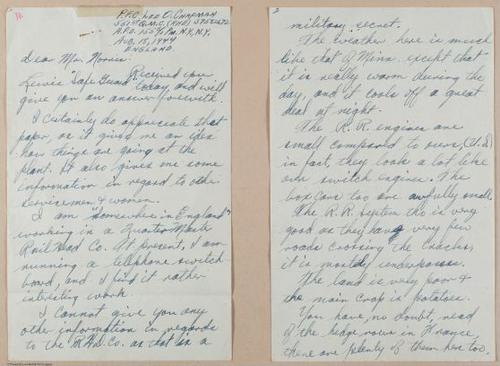 P.F.C. Leo O. Chapman
A.P.O. 155 % P.M. N.Y., N.Y.
Aug. 15, 1944
ENGLAND.
Dear Mr.
Received your
Lewis "Safe Guard" today, and will
give you an answer herewith.
I certainly do appreciate that
paper, as it gives me an idea
how things are going at the
plant. It also gives me some
information in regard to other
servicemen & women.
I am "somewhere in England"
working in a Quarter Master
Rail Head Co. At present, I am
running a telephone switch-
board, and I find it rather
interesting work.
I cannot give you any
other information in regards
to the R.H.D. Co. as that is a
2
military secret.
The weather here is much
like that of Minn. except that
it is really warm during the
day, and it cools off a great
deal at night.
The R.R. engines are
small compared to ours, (U.S.)
in fact, they look a lot like
our switch engines. The
box cars too are awfully small.
The R.R. system tho is very
good as they have very few
roads crossing the tracks,
it is mostly underpasses.
The land is very poor &
the main crop is potatoes.
You have, no doubt, read
of the hedge rows in France,
there are plenty of them here too.